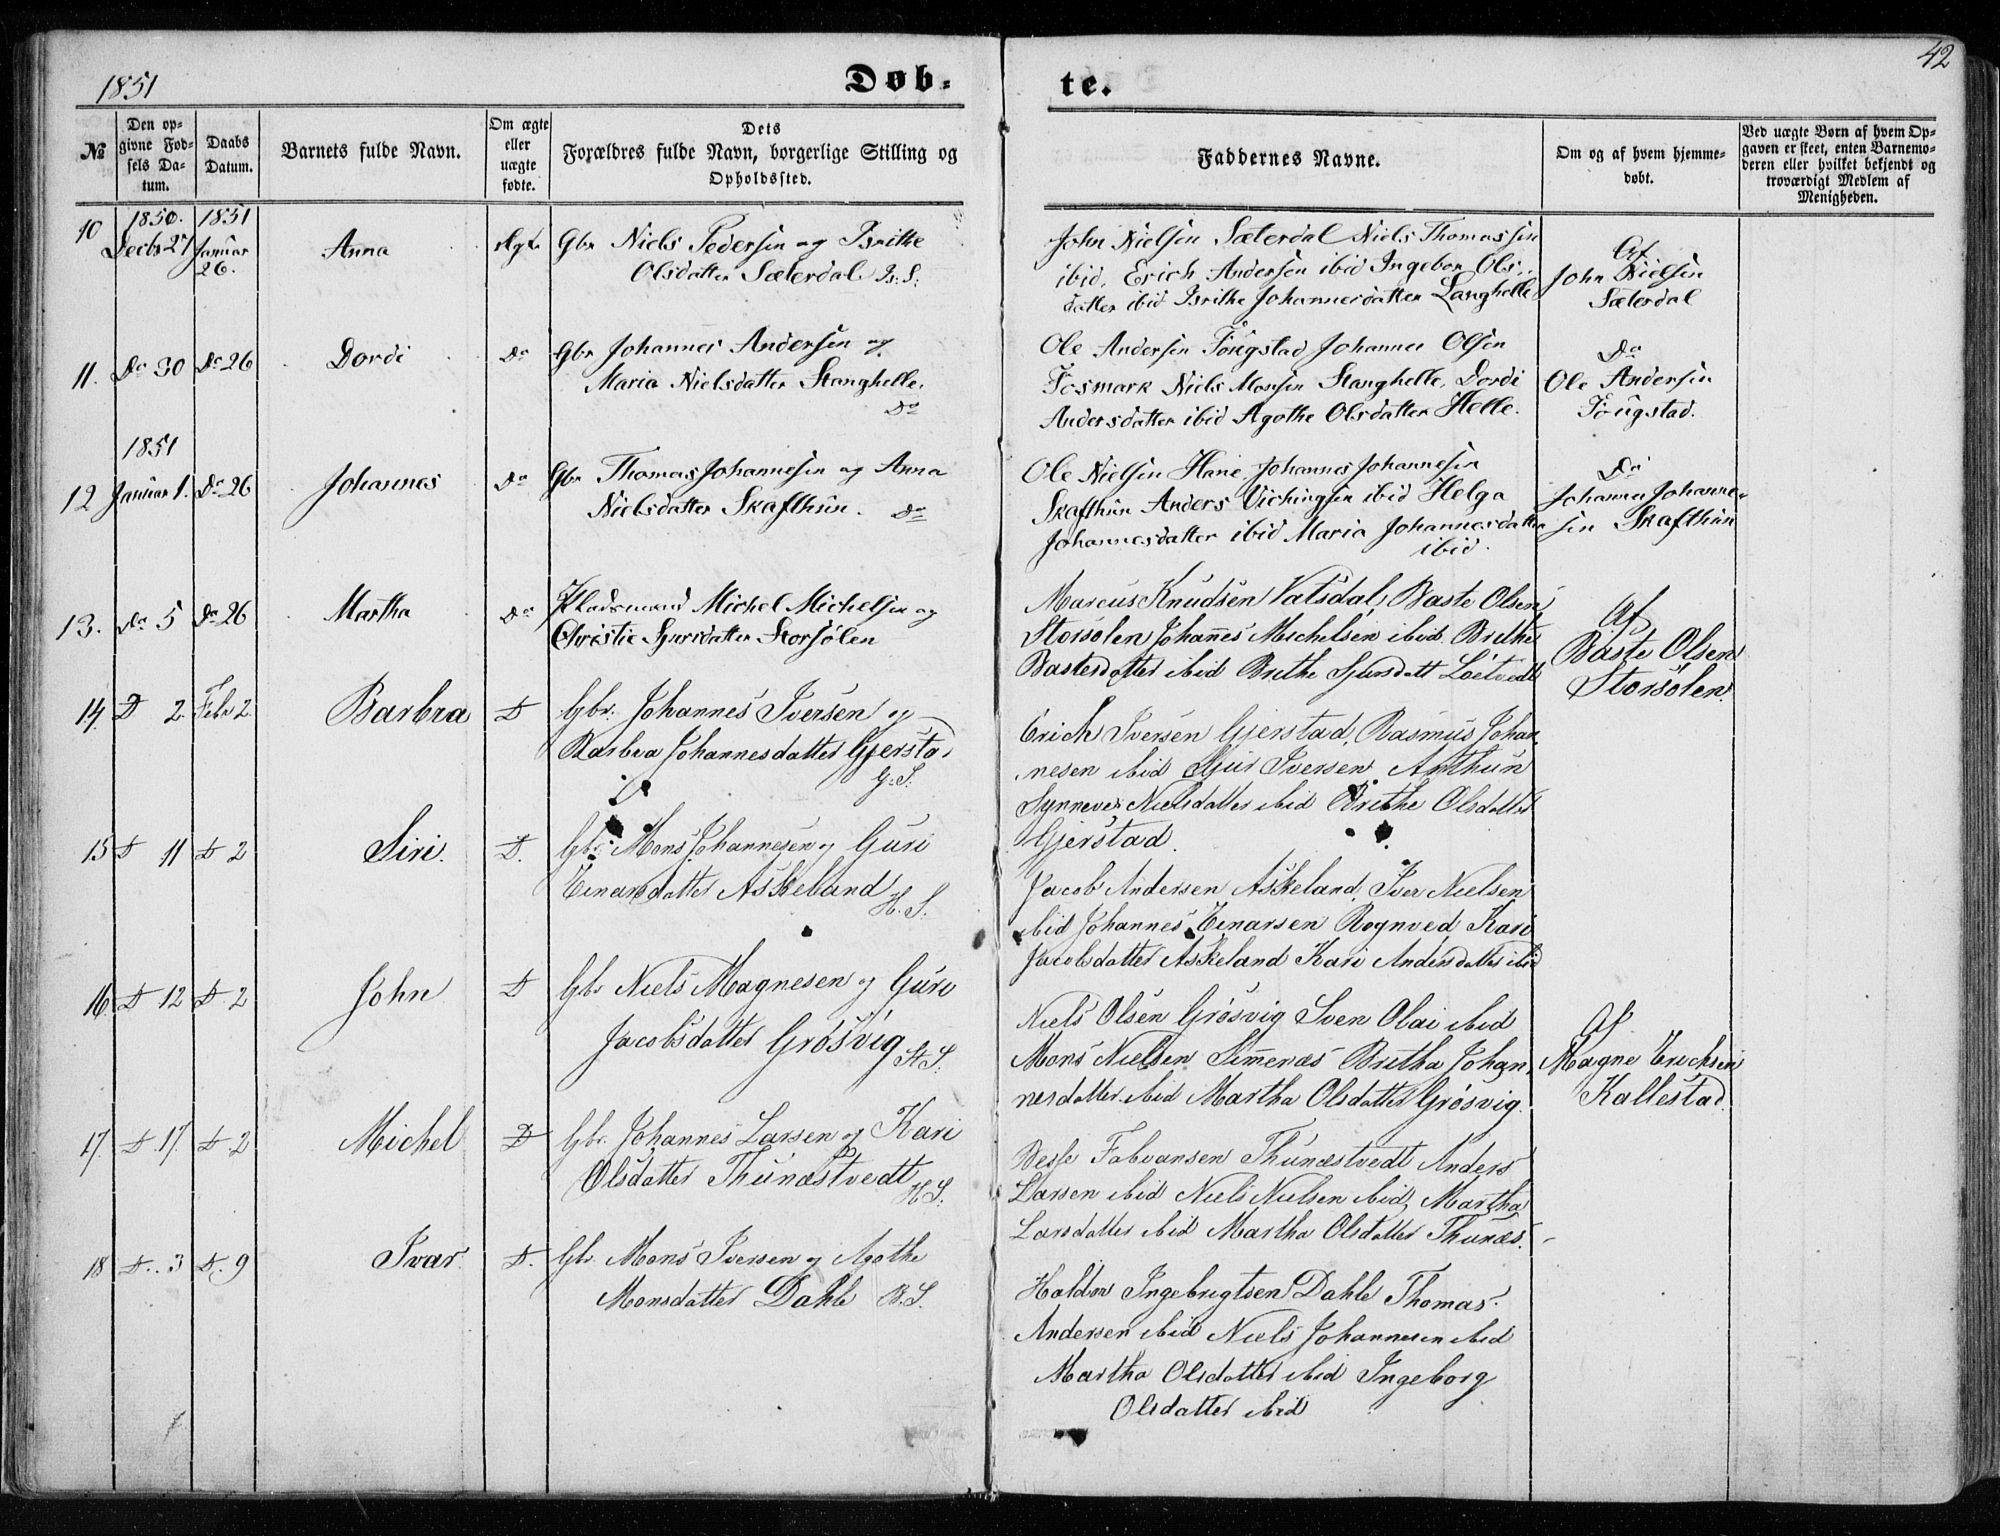 42
1851
Døb-
te.
№
Den op-
givne Fød-
sels Da-
tum.
Daabs
Datum.
Barnets fulde Navn.
Om ægte
eller
uægte
fødte.
Dets
Forældres fulde Navn, borgerlige Stilling og
Opholdssted.
Faddernes Navne.
Om og af hvem hjemme-
døbt.
Ved uægte Børn af hvem Op-
gaven er skeet, enten Barnemo-
deren eller hvilket bekjendt og
troværdigt Medlem af
Menigheden.
10
1850.
Decbr 27
1851
Januar
26.
Anna
Ægte
Gbr Niels Pedersen og Brithe
Olsdatter Sæterdal B: S:
John Nielsen Sæterdal Niels Thomassen
ibid. Erich Andersen ibid Ingebor Ols-
datter ibid Brithe Johannesdatter Langhelle
Af
John Nielsen
Sæterdal
11.
Do 30
Do 26
Dordi
Do
Gbr Johannes Andersen og
Maria Nielsdatter Stanghelle.
Do
Ole Andersen Fougstad Johannes Olsen
Fosmark Niels Monsen Stanghelle, Dordi
Andersdatter ibid Agothe Olsdatter Helle.
Do
Ole Andersen
Fougstad.
12
1851
Januar 1.
Do 26
Johannes
Do
Gbr Thomas Johannesen og Anna
Nielsdatter Skafthun. Do
Ole Nielsen Hane Johannes Johannesen
Skafthun Anders Vichingsen ibid Helga
Johannesdatter ibid Maria Johannesdatter
ibid.
Do
Johannes Johanne-
sen Skafthun
13.
Do 5
Do 26
Martha
Do
Pladsmand Michel Michelsen og
Christie Sjursdatter Storsølen
Marcus Knudsen Vatsdal, Baste Olsen
Storsølen Johannes Michelsen ibid. Brithe
Bastesdatter ibid Brithe Sjursdatt Løetvedt
Af
Baste Olsen
Storsølen.
14.
D 2.
Febr 2.
Barbra
D
Gbr. Johannes Iversen og
Barbra Johannesdatter Gjerstad
G. S.
Erich Iversen Gjerstad, Rasmus Johan-
nesen ibid Sjur Iversen Arthun
Synneve Nielsdatter ibid Brithe Olsdatter
Gjerstad.
15
D 11
D 2
Siri.
D.
Gbr. Mons Johannesen og Guri
Einarsdatter Askeland
H. S.
Jacob Andersen Askeland, Iver Nielsen
ibid Johannes Einarsen Rognved Kari
Jacobsdatter Askeland Kari Andersdatter ibid
16
D 12
D 2
John
D
Gbr Niels Magnesen og Guri
Jacobsdatter Grøsvig St. S.
Niels Olsen Grøsvig Sven Olai ibid
Mons Nielsen Simmenæs Britha Johan-
nesdatter ibid Martha Olsdatter Grøsvig.
Af
Magne Erichsen
Kallestad.
17.
D 17.
D 2
Michel
D
Gbr. Johannes Larsen og Kari
Olsdatter Thunæstvedt
H. S.
Besse Fabiansen Thunæstvedt Anders
Larsen ibid Niels Nielsen ibid, Martha
Larsdatter ibid Martha Olsdatter Thunæs.
18
D. 3
D. 9
Ivar
D.
Gbr. Mons Iversen og Agothe
Monsdatter Dahle B. S.
Holden Ingebrigtsen Dahle Thomas
Andersen ibid Niels Johannesen ibid
Martha Olsdatter ibid Ingeborg
Olsdatter ibid